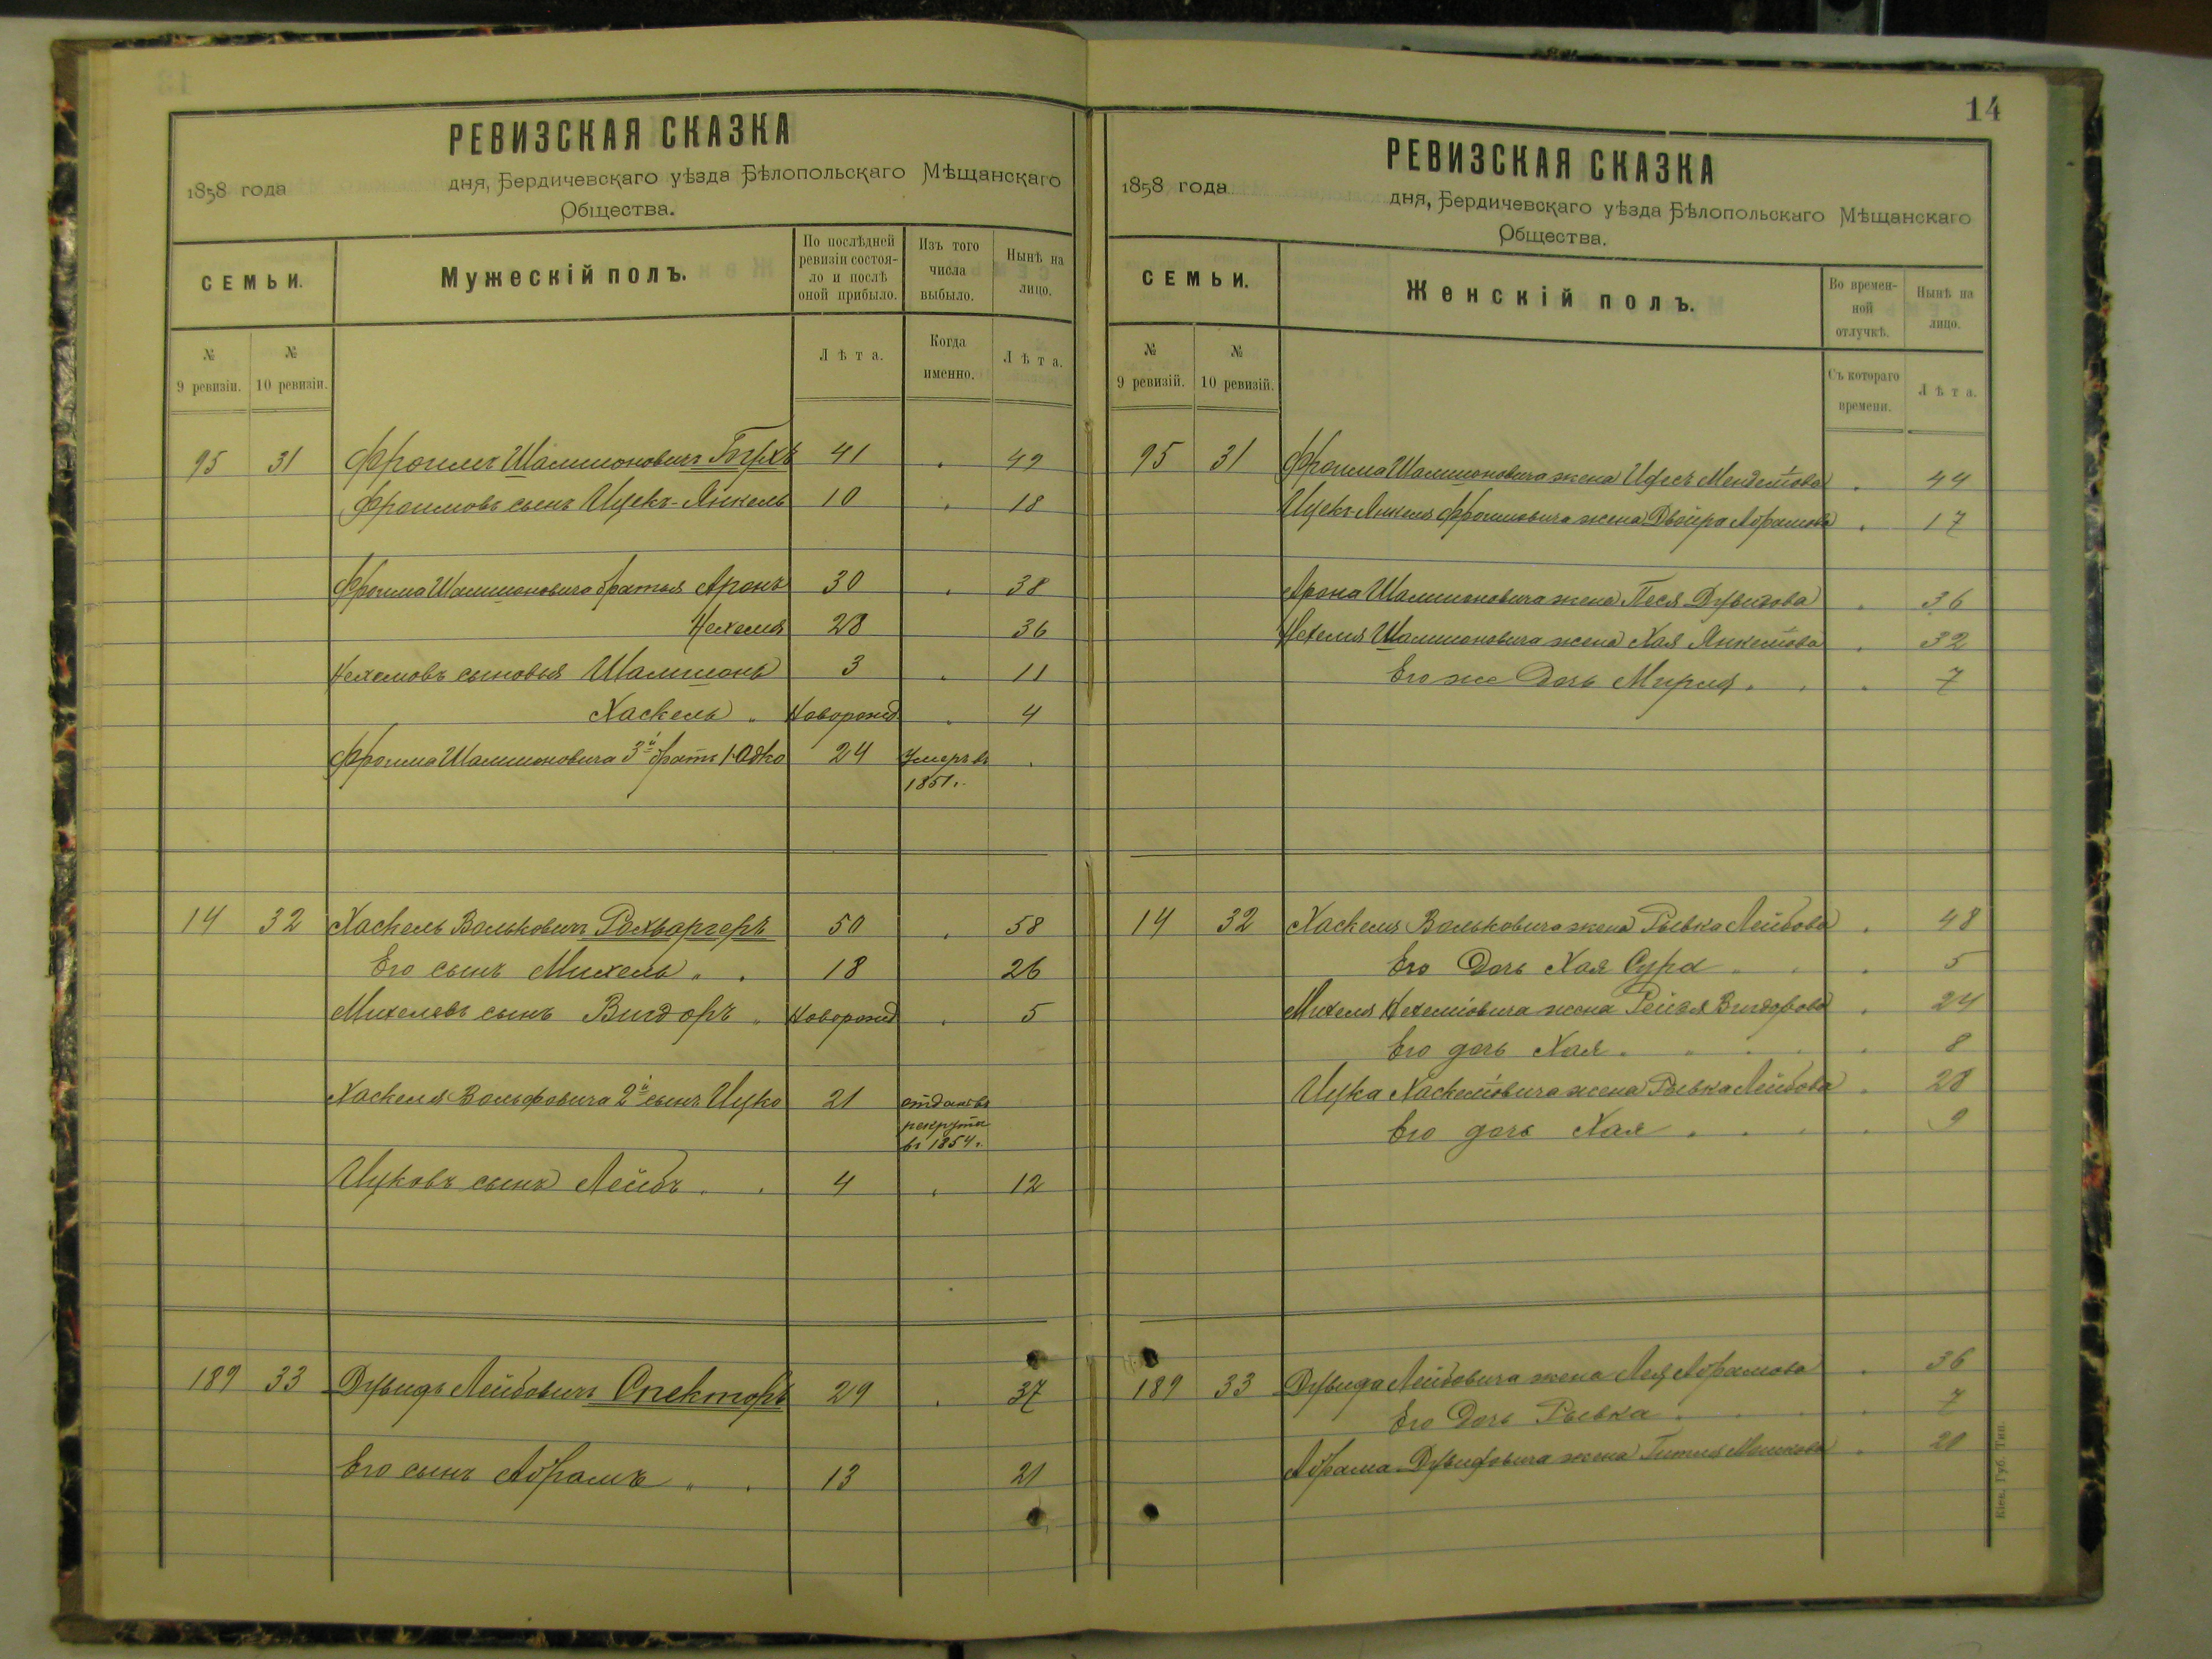 14
РЕВИЗСКАЯ СКАЗКА
1858 года дня, Бердичевскаго уѣзда Бѣлопольскаго Мѣщанскаго
Общества.
СЕМЬИ.
Мужескій полъ.
По послѣдней
ревизіи состоя-
ло и послѣ
оной прибыло.
Изъ того
числа
выбыло.
Нынѣ на
лицо.
№
9 ревизіи.
№
10 ревизіи.
Лѣта.
Когда
именно.
Лѣта.
95 31 Фроимъ Шамшоновичъ 41 49
Фроимовъ сынъ Ицекъ-Янкель 10 18
Фроима Шамшоновича братья Аронъ 30 38
Нехемія 28 36
Нехемовъ сыновья Шамшонъ 3 11
Хаскель Новорожд 4
Фроима Шамшоновича 3й братъ Юдко 24 Умеръ въ
1851.
14 32 Хаскель Вольковичъ 50 58
Его сынъ Михель 18 26
Михелевъ сынъ Вигдоръ Новорожд 5
Хаскеля Вольфовича 2й сынъ Ицко 21 отданъ въ
рекруты
въ 1854.
Ицковъ сынъ Лейбъ 4 12
189 33 Дувидъ Лейбовичъ Спекторъ 29 37
Его сынъ Абрамъ 13 21
РЕВИЗСКАЯ СКАЗКА
1858 года дня, Бердичевскаго уѣзда Бѣлопольскаго Мѣщанскаго
Общества.
СЕМЬИ.
Женскій полъ.
Во времен-
ной
отлучкѣ.
Нынѣ на
лицо.
№
9 ревизій.
№
10 ревизій.
Съ котораго
времени.
Лѣта.
95 31 Фроима Шамшоновича жена Менделіова 44
Ицекъ-Янкеля Фроимовича жена Двойра Абрамова 17
Арона Шамшоновича жена Песя Дувидова 36
Нехемія Шамшоновича жена Хая Янкеліова 32
Его же Дочь Мирля 7
14 32 Хаскеля Вольковича жена Рывка Лейбова 48
Его Дочь Хая Сура 5
Михеля Нехеміовича жена Рейзя Вигдорова 24
Его дочь Хая 8
Ицка Хаскеліовича жена Рывка Лейбова 28
Его дочь Хая 9
189 33 Дувида Лейбовича жена Лея Абрамова 36
Его Дочь Рывка 7
Абрама Дувидовича жена Гитля Мошкова 20
Кіев. Губ. Тип.